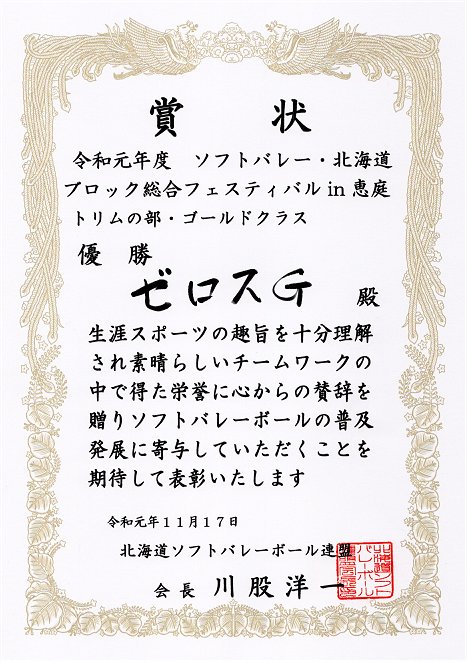 賞状
令和元年度　ソフトバレー・北海道
ブロック総合フェスティバル in 恵庭
トリムの部・ゴールドクラス
優勝
ゼロスG 殿
生涯スポーツの趣旨を十分理解
され素晴らしいチームワークの
中で得た栄誉に心からの賛辞を
贈りソフトバレーボールの普及
発展に寄与していただくことを
期待して表彰いたします
令和元年１１月１７日
北海道ソフトバレーボール連盟
会長 川股洋一
北海道ソフト
バレーボール